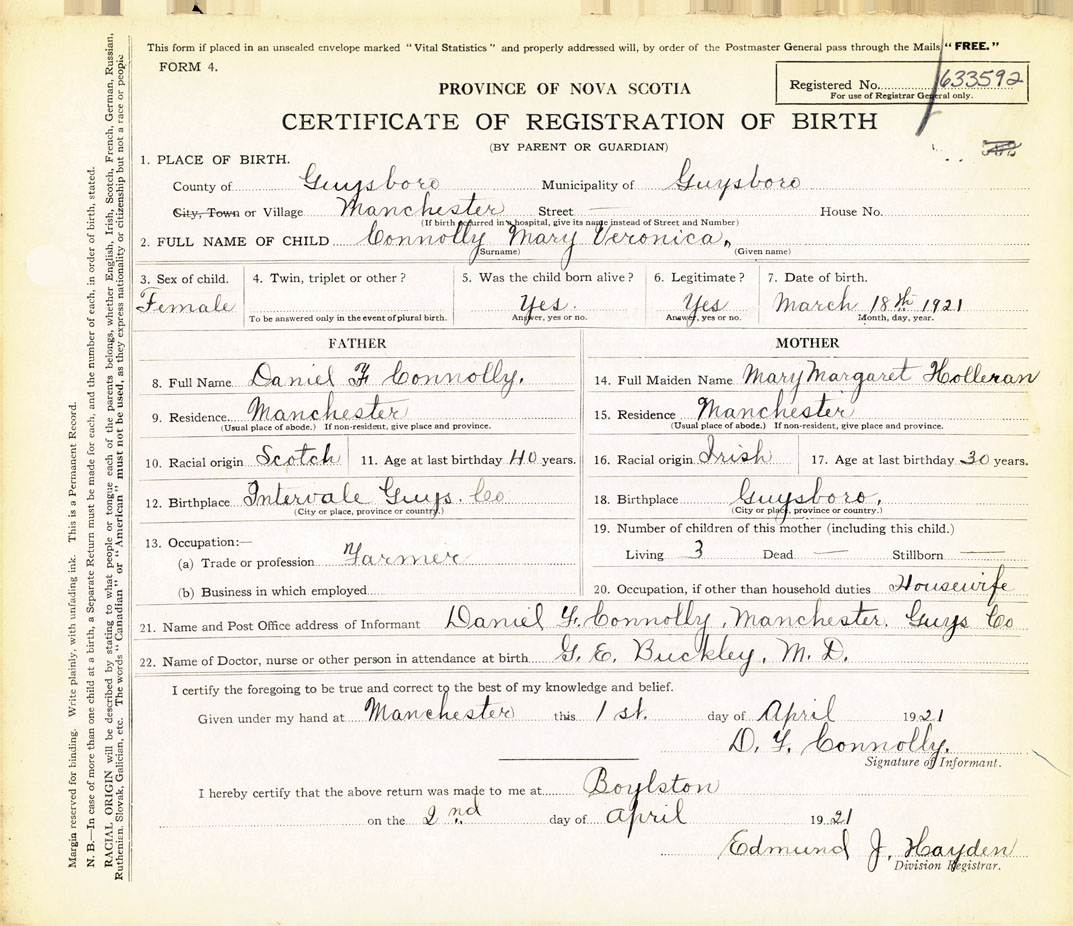 This form if placed in an unsealed envelope marked "Vital Statistics" and properly addressed will, by order of the Postmaster General pass through the Mails "FREE."
FORM 4.
Registered No. 633592
For use of Registrar General only.
PROVINCE OF NOVA SCOTIA
CERTIFICATE OF REGISTRATION OF BIRTH
(BY PARENT OR GUARDIAN)
1. PLACE OF BIRTH.
County of Guysboro Municipality of Guysboro
City, Town or Village Manchester Street — House No.
(If birth occurred in a hospital, give its name instead of Street and Number)
2. FULL NAME OF CHILD Connolly Mary Veronica,
(Surname) (Given name)
3. Sex of child. 4. Twin, triplet or other? 5. Was the child born alive? 6. Legitimate? 7. Date of birth.
Female Yes. Yes March 18th 1921
To be answered only in the event of plural birth. Answer, yes or no. Answer, yes or no. Month, day, year.
FATHER
8. Full Name Daniel F Connolly.
9. Residence Manchester
(Usual place of abode.) If non-resident, give place and province.
10. Racial origin Scotch 11. Age at last birthday 40 years.
12. Birthplace Intervale Guys. Co
(City or place, province or country.)
13. Occupation:—
(a) Trade or profession Farmer
(b) Business in which employed
MOTHER
14. Full Maiden Name Mary Margaret Holleran
15. Residence Manchester
(Usual place of abode.) If non-resident, give place and province.
16. Racial origin Irish 17. Age at last birthday 30 years.
18. Birthplace Guysboro,
(City or place, province or country.)
19. Number of children of this mother (including this child.)
Living 3 Dead — Stillborn —
20. Occupation, if other than household duties Housewife
21. Name and Post Office address of Informant Daniel F. Connolly, Manchester. Guys Co
22. Name of Doctor, nurse or other person in attendance at birth G. E. Buckley, M. D.
I certify the foregoing to be true and correct to the best of my knowledge and belief.
Given under my hand at Manchester this 1st. day of April 1921
D. F. Connolly.
Signature of Informant.
I hereby certify that the above return was made to me at Boylston
on the 2nd day of April 1921
Edmund J. Hayden
Division Registrar.
Margin reserved for binding. Write plainly, with unfading ink. This is a Permanent Record.
N. B.—In case of more than one child at a birth, a Separate Return must be made for each, and the number of each, in order of birth, stated.
RACIAL ORIGIN will be described by stating to what people or tongue each of the parents belongs, whether English, Irish, Scotch, French, German, Russian,
Ruthenian, Slovak, Galician, etc. The words "Canadian" or "American" must not be used, as they express nationality or citizenship but not a race or people